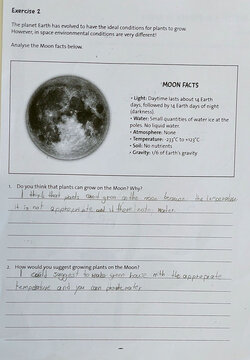 Exercise 2
The planet Earth has evolved to have the ideal conditions for plants to grow.
However, in space environmental conditions are very different!
Analyse the Moon facts below.
MOON FACTS
• Light: Daytime lasts about 14 Earth
days, followed by 14 Earth days of night
(darkness).
• Water: Small quantities of water ice at the
poles. No liquid water.
• Atmosphere: None
• Temperature: -233°C to +123°C
• Soil: No nutrients
• Gravity: 1/6 of Earth's gravity
1. Do you think that plants can grow on the Moon? Why?
I think that plants grow on the moon because the temperature
it is not appropriate and is there water.
2. How would you suggest growing plants on the Moon?
I could suggest to green house with the appropriate
temperature and you can water